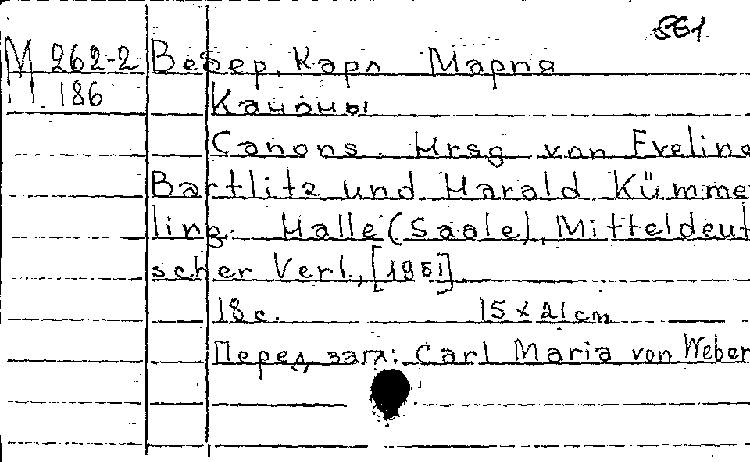 561
М 262-2 Вебер, Карл Мария
П. 186 Каноны
Canons. Hrsg von Eveline
Bartlitz und Harald Kümme
ling. Halle (Saale), Mitteldeut
scher Verl., [1951]
18 с. 15 x 21 cm
Перед загл: Carl Maria von Weber